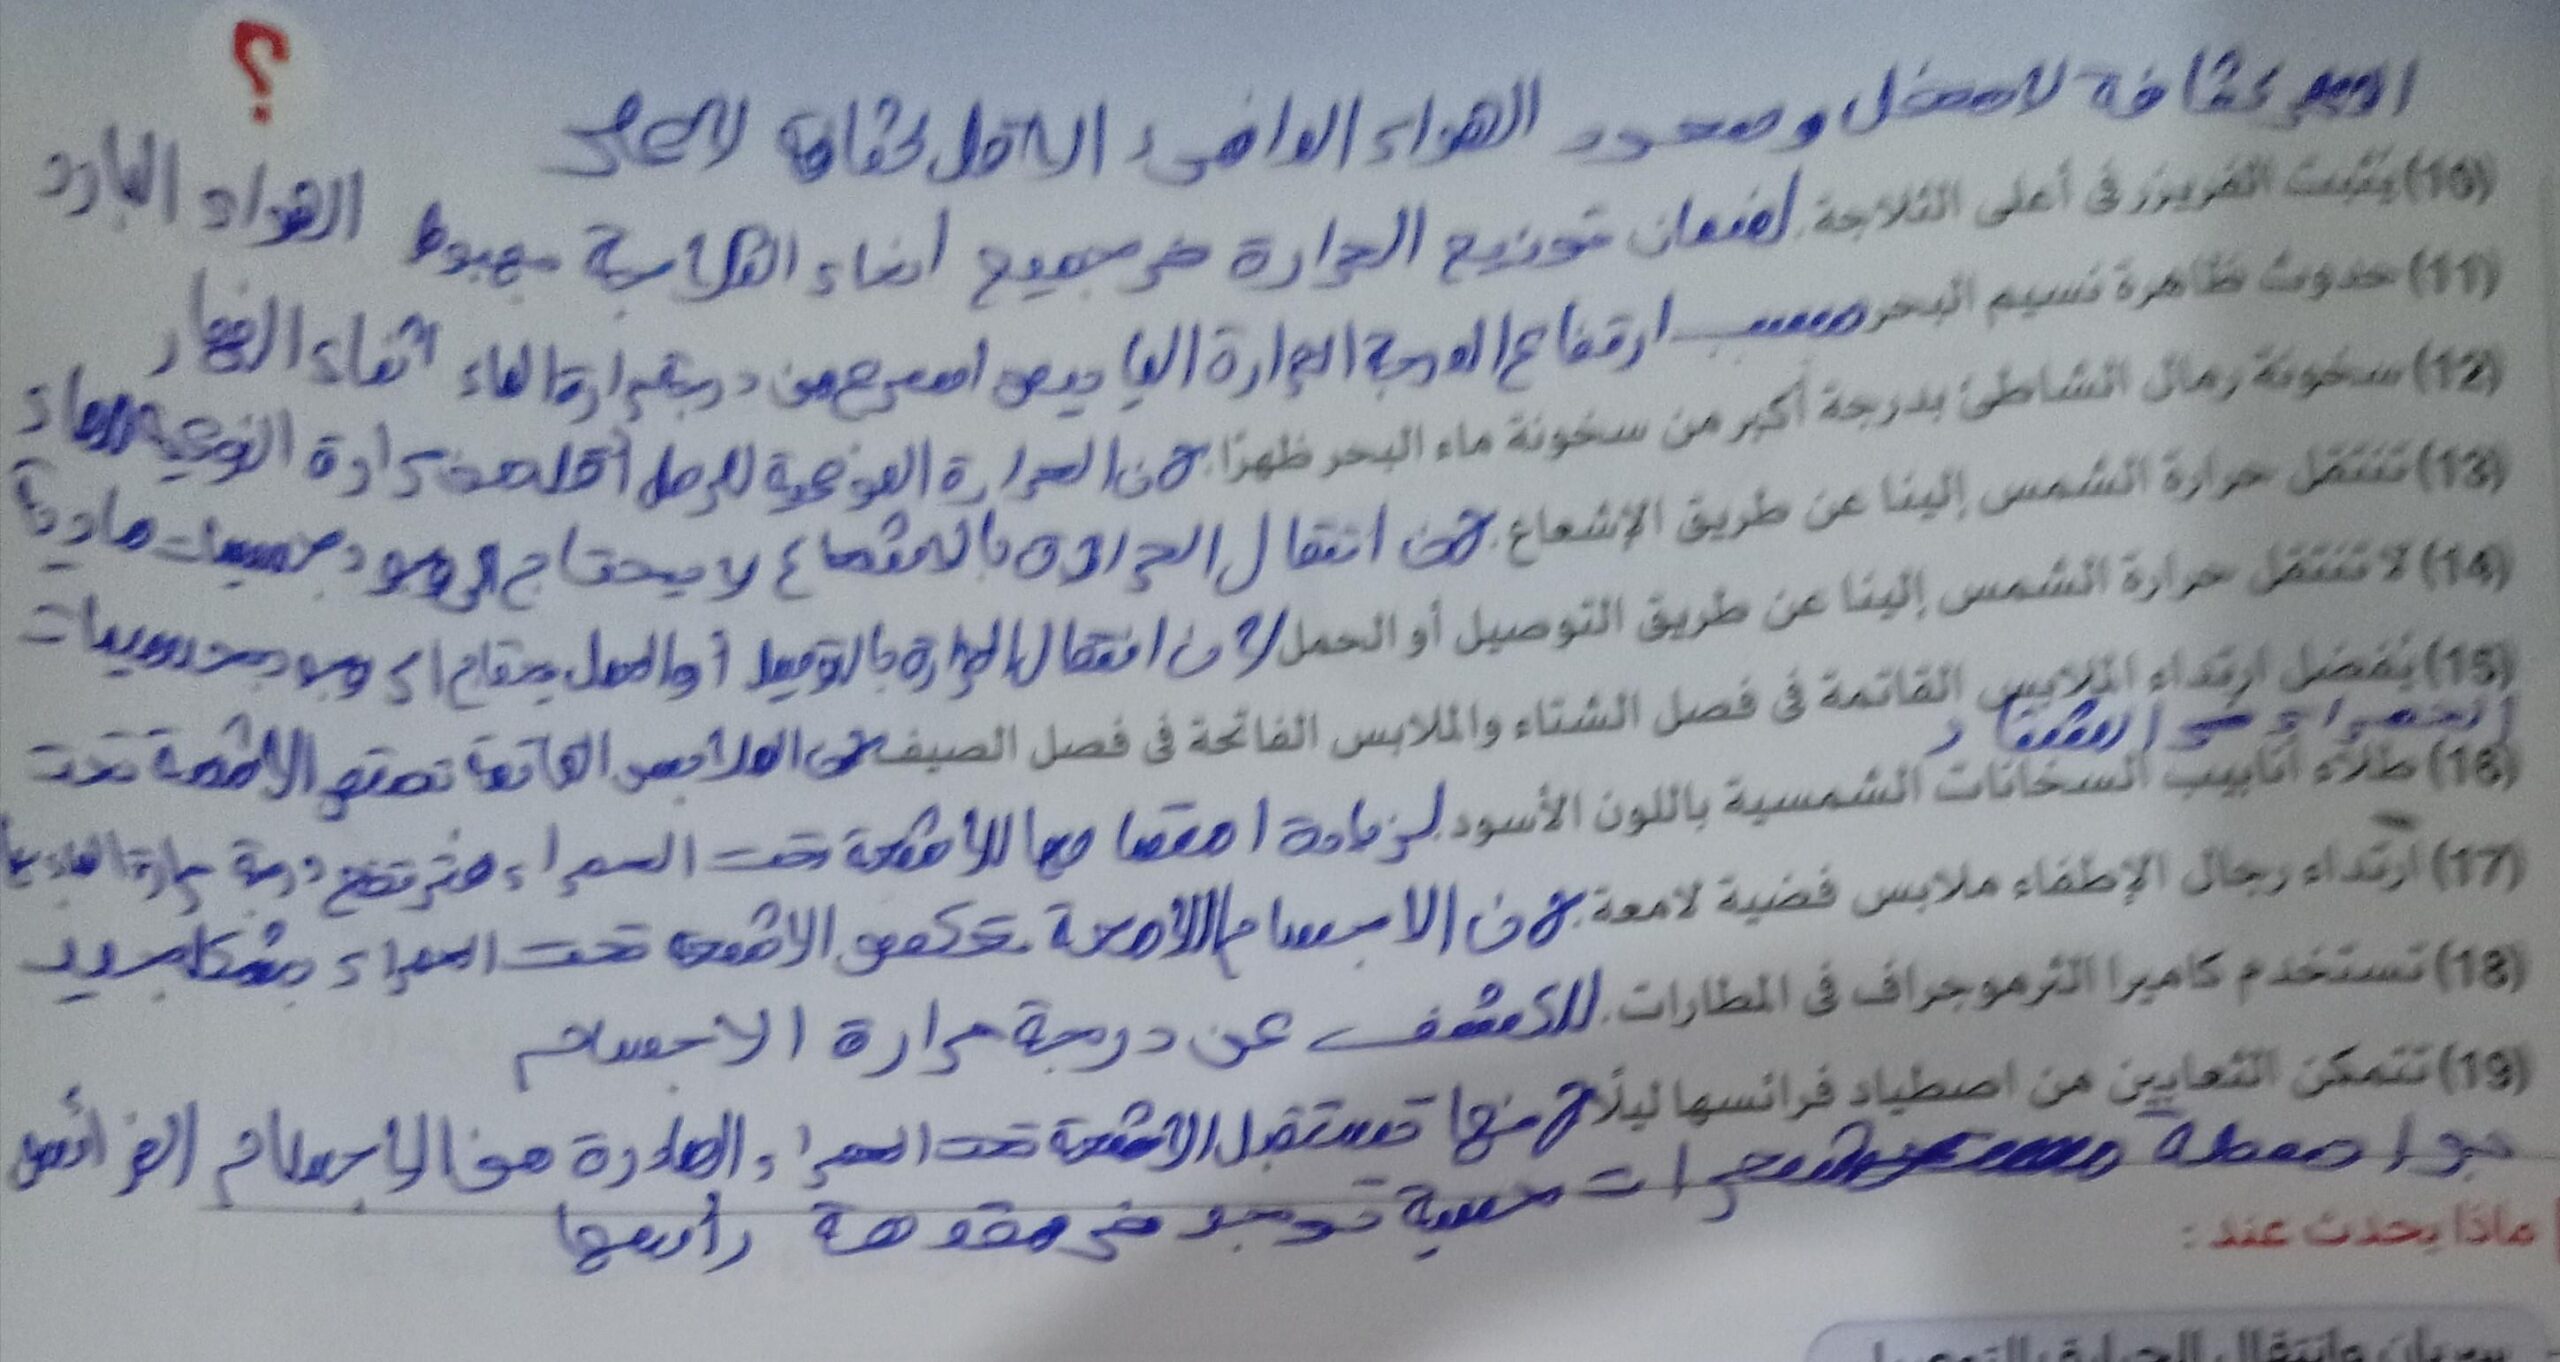 ؟
الاكبر كثافة لاسفل وصعود الهواء الدافئ الاقل كثافة لاعلى
(10) يثبت الفريزر فى أعلى الثلاجة. لضمان توزيع الحرارة فى جميع أنحاء الثلاجة بهبوط الهواء البارد
(11) حدوث ظاهرة نسيم البحر بسبب ارتفاع الدرجة الحرارة اليابس اسرع من درجة حرارة الماء اثناء النهار
(12) سخونة رمال الشاطئ بدرجة أكبر من سخونة ماء البحر ظهرًا. لان الحرارة النوعية للرمل أقل من حرارة النوعية للماء
(13) تنتقل حرارة الشمس إلينا عن طريق الإشعاع. لان انتقال الحرارة بالاشعاع لا يحتاج الى وجود جسيمات مادية
(14) لا تنتقل حرارة الشمس إلينا عن طريق التوصيل أو الحمل لان انتقال الحرارة بالتوصيل أو الحمل يحتاج الى وجود جسيمات
(15) يُفضل ارتداء الملابس القاتمة فى فصل الشتاء والملابس الفاتحة فى فصل الصيف. لان الملابس القاتمة تمتص الاشعة تحت
الحمراء فى الشتاء
(16) طلاء أنابيب السخانات الشمسية باللون الأسود. لزيادة امتصاصها للاشعة تحت الحمراء فترتفع درجة حرارة الماء بها
(17) ارتداء رجال الإطفاء ملابس فضية لامعة. لان الاجسام اللامعة تعكس الاشعة تحت الحمراء بشكل جيد
(18) تستخدم كاميرا الثرموجراف فى المطارات. للكشف عن درجة حرارة الاجسام
(19) تتمكن الثعابين من اصطياد فرائسها ليلًا لانها تستقبل الاشعة تحت الحمراء الصادرة من اجسام الفرائس
بواسطة شعيرات حسية توجد فى مقدمة رأسها
ماذا يحدث عند :
سريان وانتقال الحرارة بالتوصيل